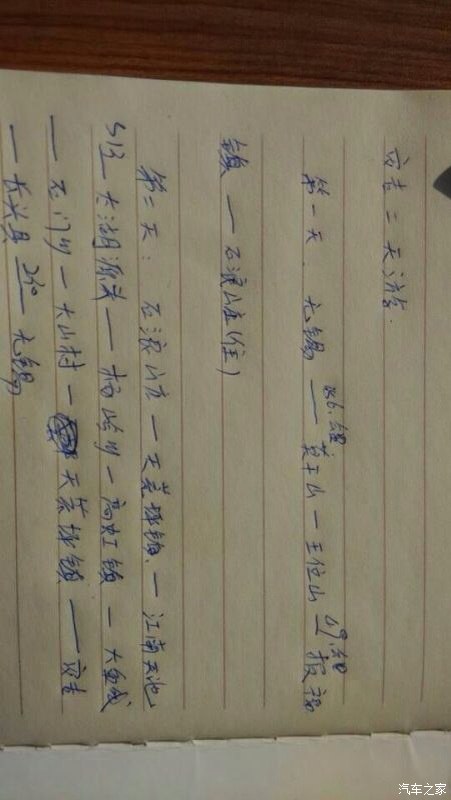 安吉二天游.
第一天. 无锡 — 莫干山 — 王位山 — 报福
镇 — 石浪山庄(住)
第二天: 石浪山庄 — 天荒坪镇. — 江南天池
S13 太湖源头 — 杨岭川 — 高虹镇 — 大鱼
— 石门川 — 大山村 — 天荒坪镇 — 安吉
— 长兴县 — 无锡
汽车之家